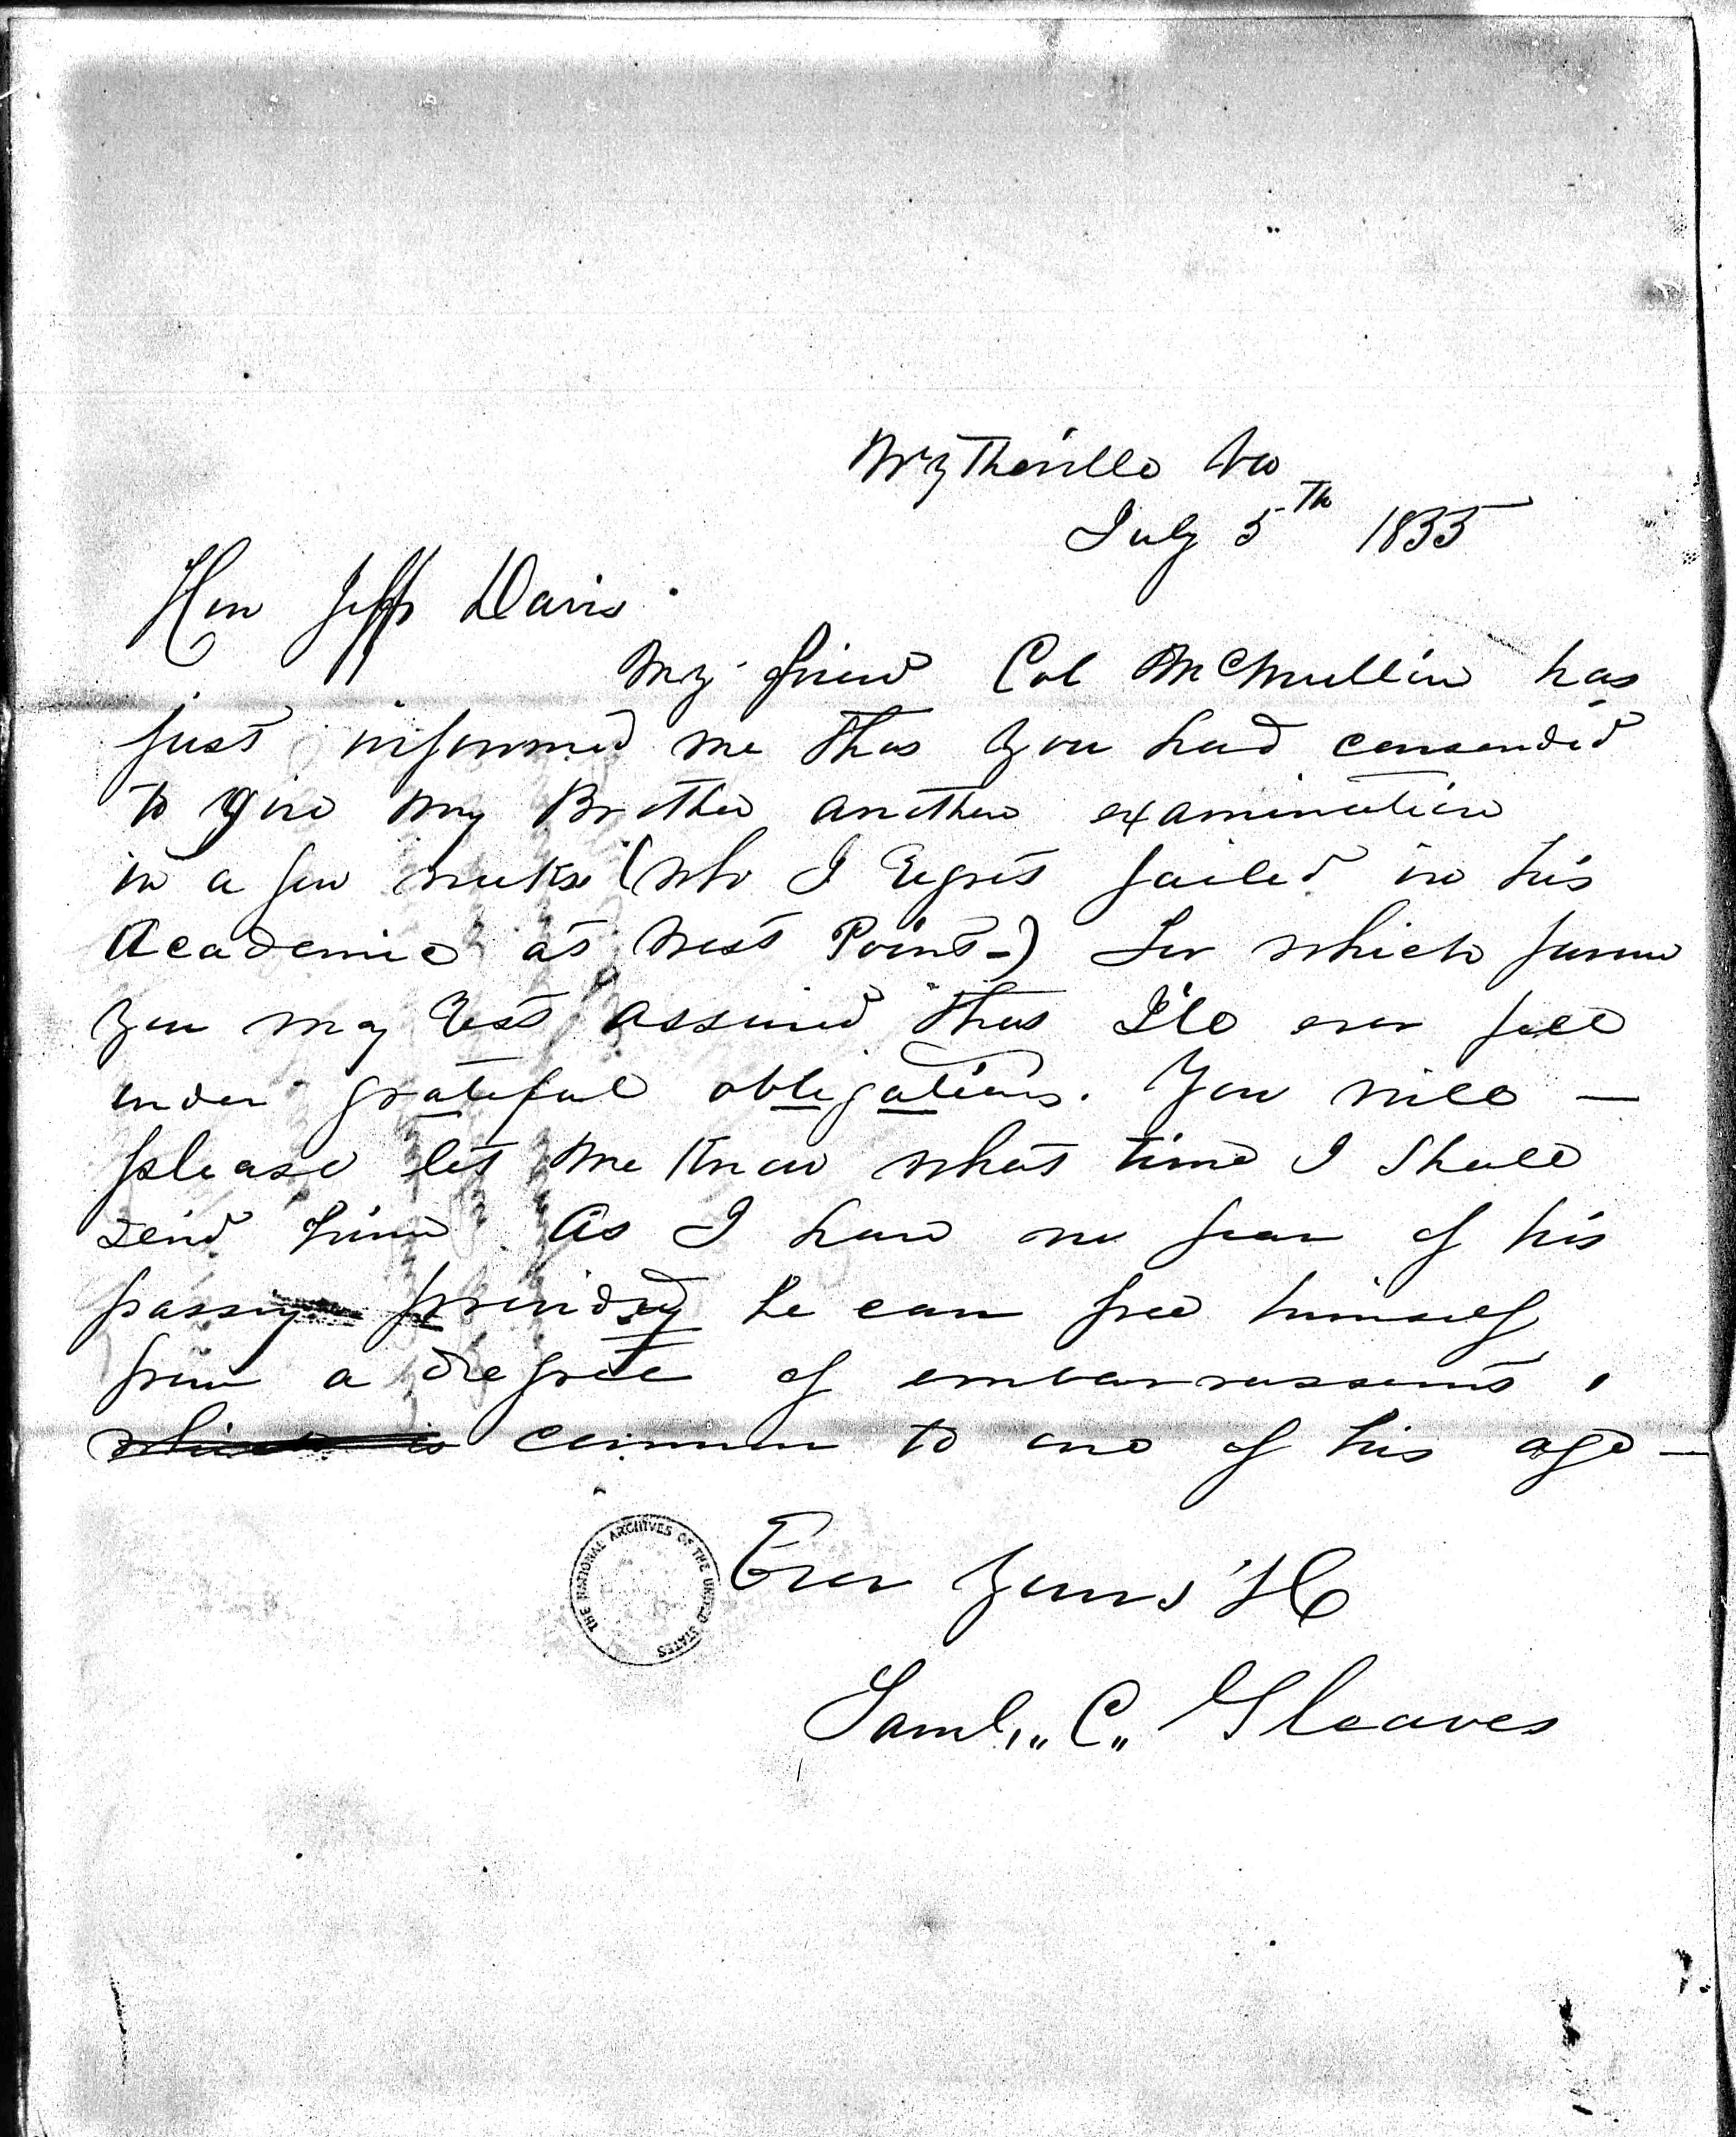 Wytheville Va
July 5th 1855
Hon Jeff Davis
My friend Col McMullin has
just informed me that you had consended
to give my Brother another examination
in a few weeks (who I Regret failed in his
Academic at West Point-) For which favour
you may Rest assured that I'll ever feel
under grateful obligations. You will —
please let me know what time I shall
send him. As I have no fear of his
passing providing he can free himself
from a degree of embarrassment,
which is common to one of his age —
THE NATIONAL ARCHIVES OF THE UNITED STATES
Ever yours &c
Saml,, C,, Gleaves